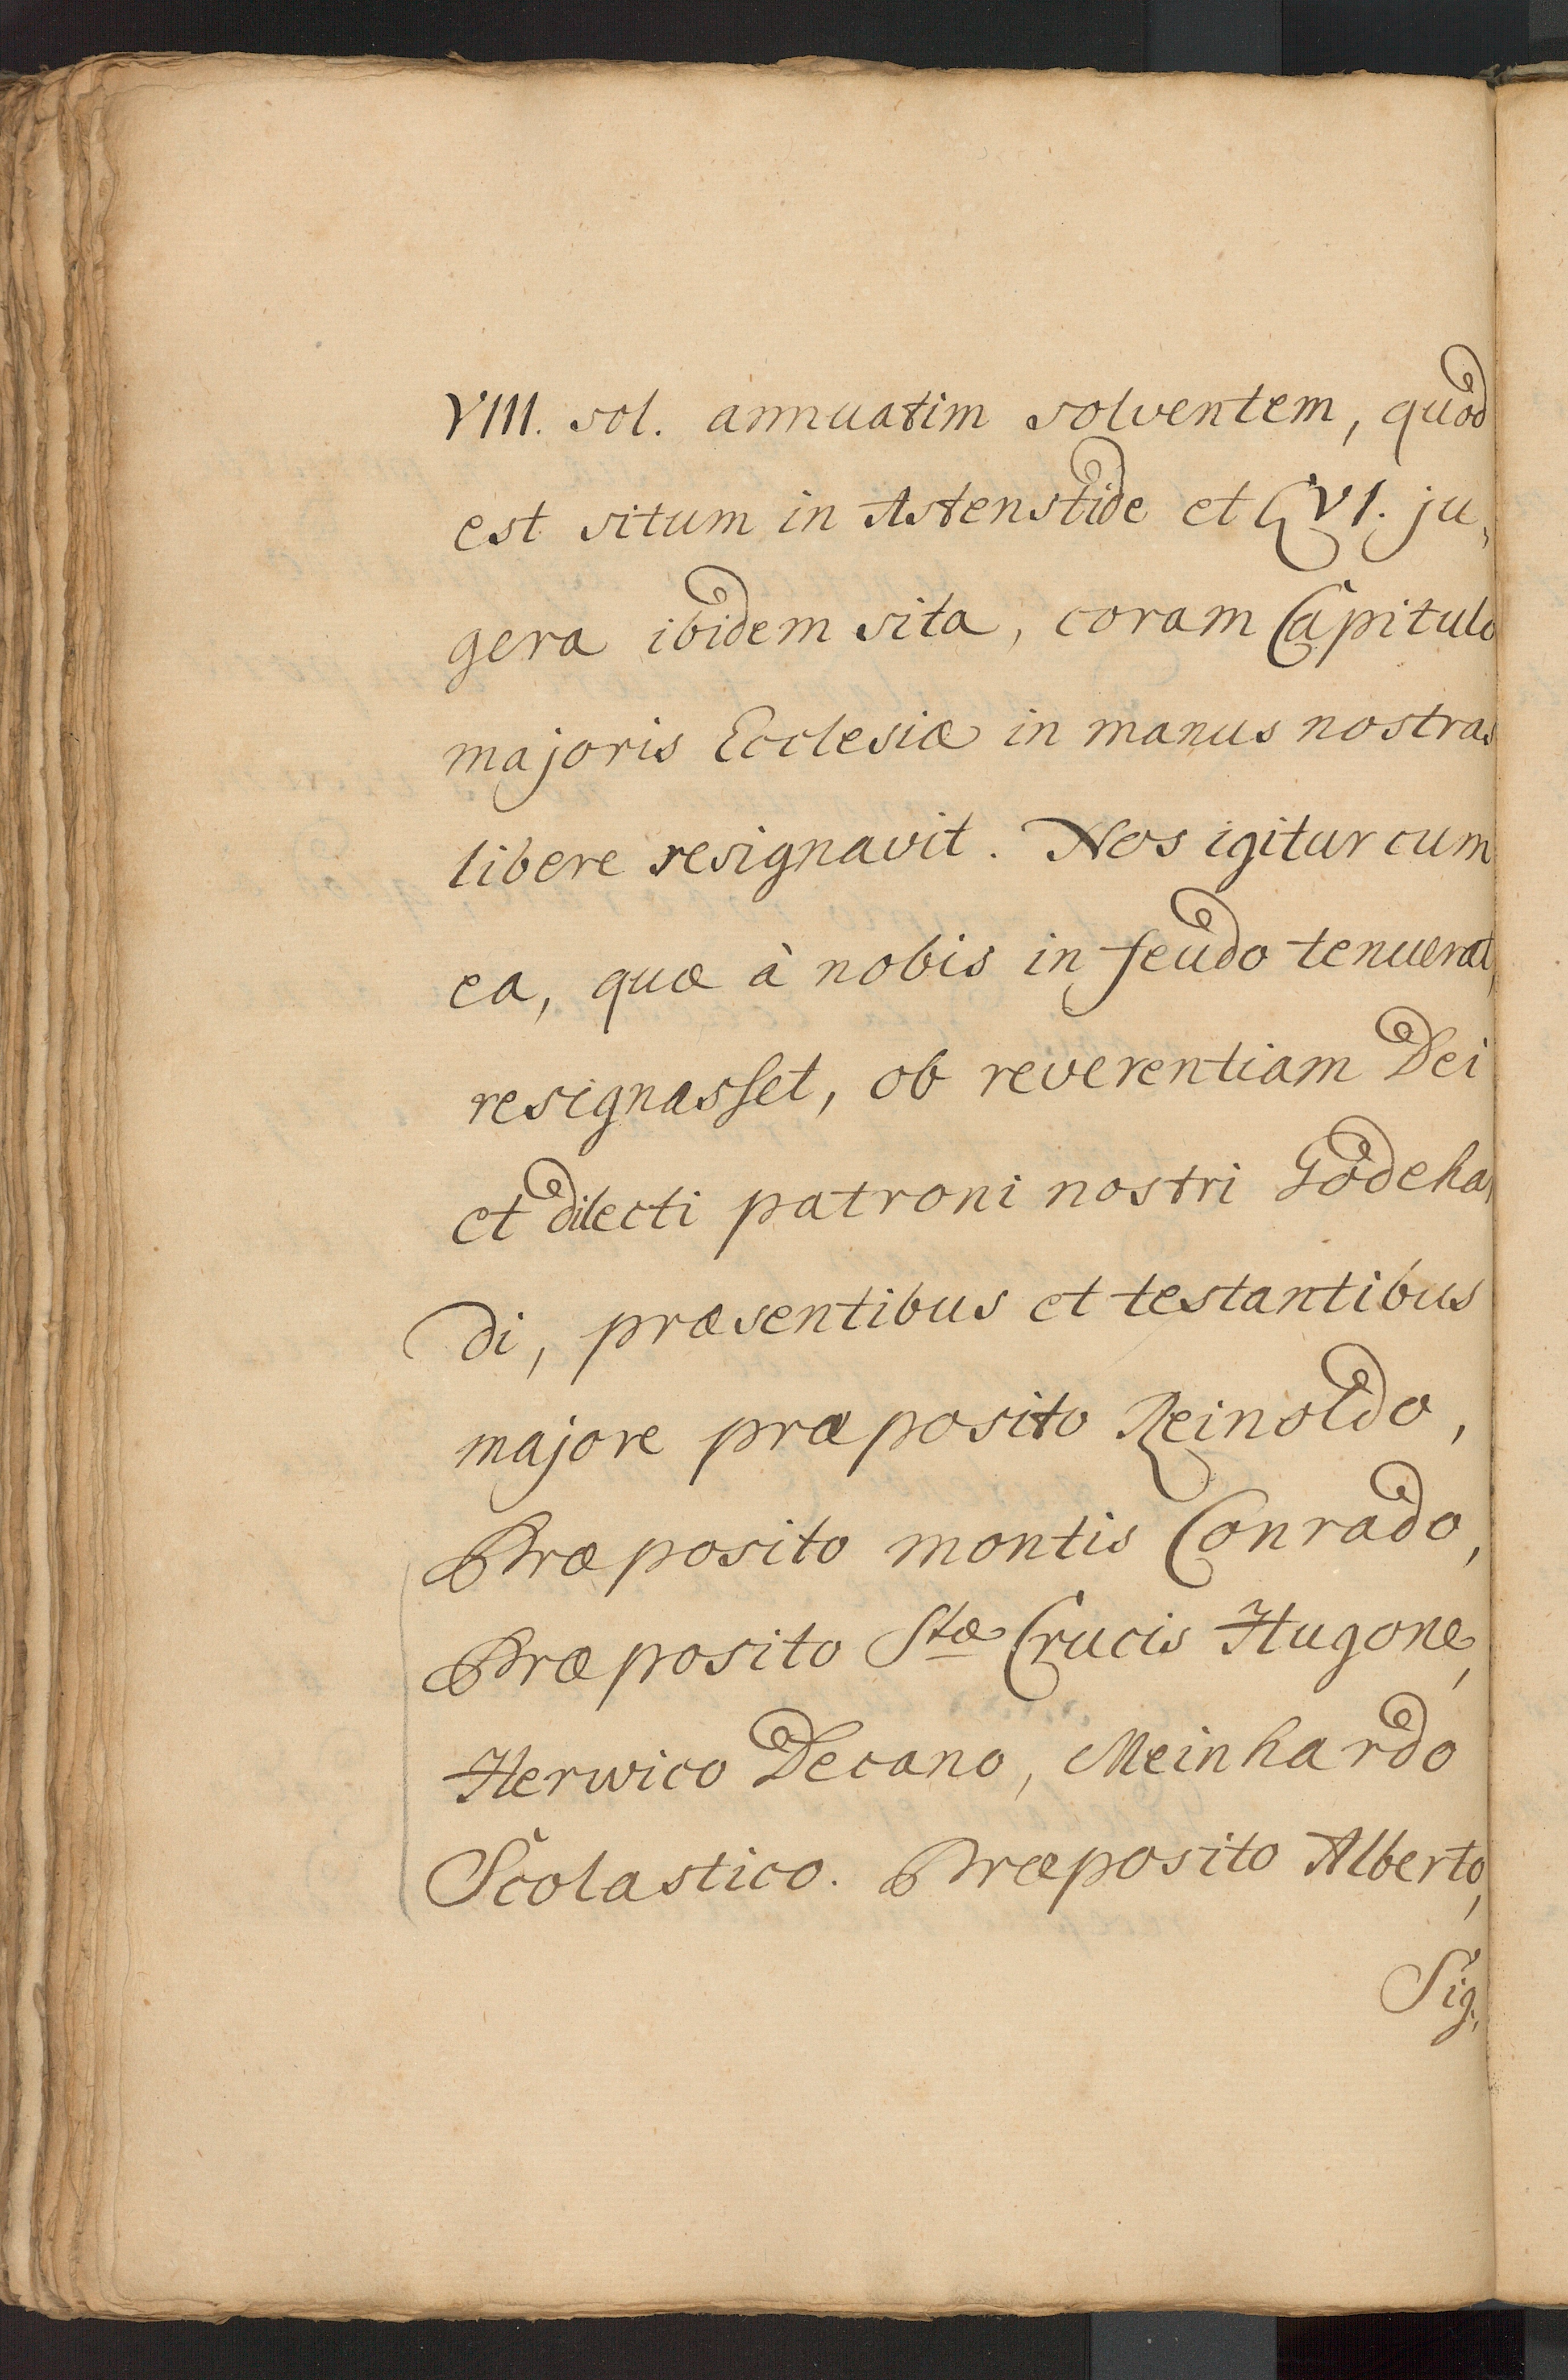 VIII. sol. annuatim solventem, quod
est situm in Astenstide et CVI. ju,
gera ibidem sita, coram Capitulo
majoris Ecclesiæ in manus nostras
libere resignavit. Nos igitur cum
ea, quæ à nobis in feudo tenuerat,
resignasset, ob reverentiam Dei
et dilecti patroni nostri Godeha,
di, præsentibus et testantibus
majore præposito Reinoldo,
Præposito montis Conrado,
Præposito Stæ Crucis Hugone,
Herwico Decano, Meinhardo
Scolastico. Præposito Alberto,
Sig,